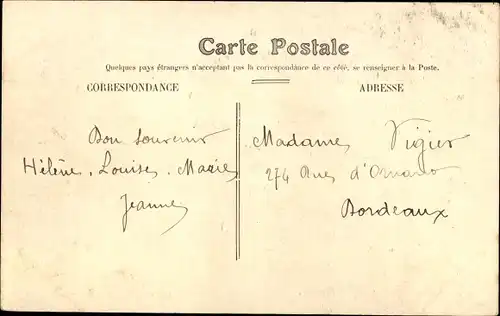 Carte Postale
Quelques pays étrangers n'acceptant pas la correspondance de ce côté, se renseigner à la Poste.
CORRESPONDANCE
Bon souvenir
Hélène, Louise, Marie,
Jeanne
ADRESSE
Madame Vigier
274 Rue d'Ornano
Bordeaux